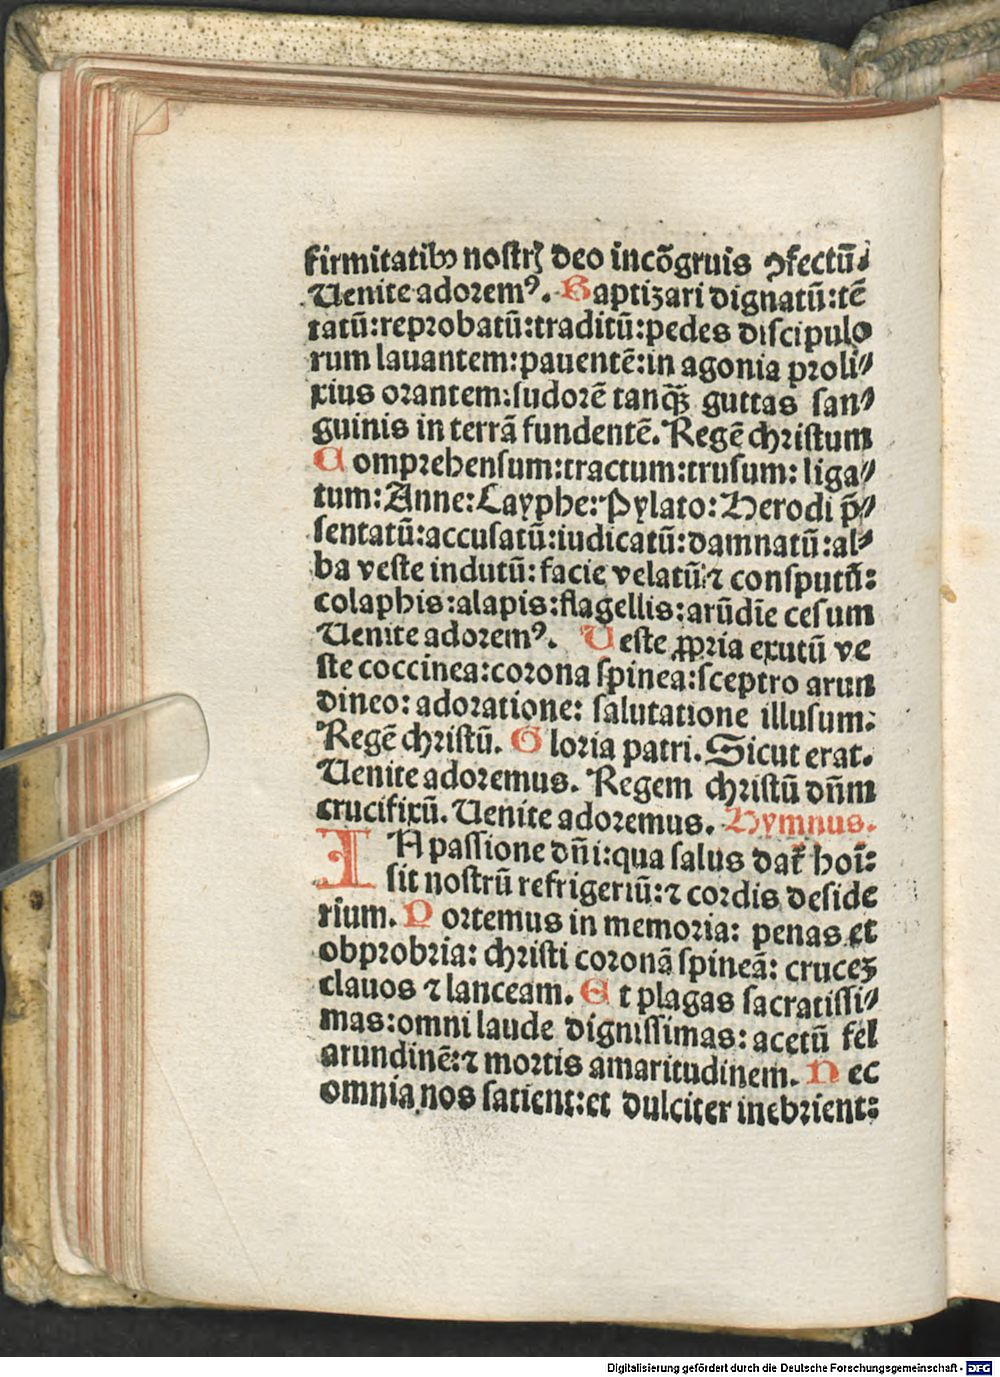 firmitatibꝰ nostrꝭ deo incōgruis ꝯfectū.
Uenite adoremꝰ. Baptizari dignatū: tē
tatū: reprobatū: traditū: pedes discipulo
rum lauantem: pauentē: in agonia proli⸗
xius orantem: sudorē tanꝙ̄ guttas san⸗
guinis in terrā fundentē. Regē christum
Comprehensum: tractum: trusum: liga⸗
tum: Anne: Cayphe: Pylato: Herodi p̄⸗
sentatū: accusatū: iudicatū: damnatū: al⸗
ba veste indutū: facie velatū: ⁊ consputū:
colaphis: alapis: flagellis: arūdīe cesum
Uenite adoremꝰ. Ueste ꝓpria exutū ve
ste coccinea: corona spinea: sceptro arun
dineo: adoratione: salutatione illusum.
Regē christū. Gloria patri. Sicut erat.
Uenite adoremus. Regem christū dn̄m
crucifixū. Uenite adoremus. Hymnus.
IN passione dn̄i: qua salus dat̄ hoī:
sit nostrū refrigeriū: ⁊ cordis deside
rium. Portemus in memoria: penas et
obprobria: christi coronā spineā: crucez
clauos ⁊ lanceam. Et plagas sacratissi⸗
mas: omni laude dignissimas: acetū fel
arundinē: ⁊ mortis amaritudinem. Nec
omnia nos satient: et dulciter inebrient:
Digitalisierung gefördert durch die Deutsche Forschungsgemeinschaft - DFG